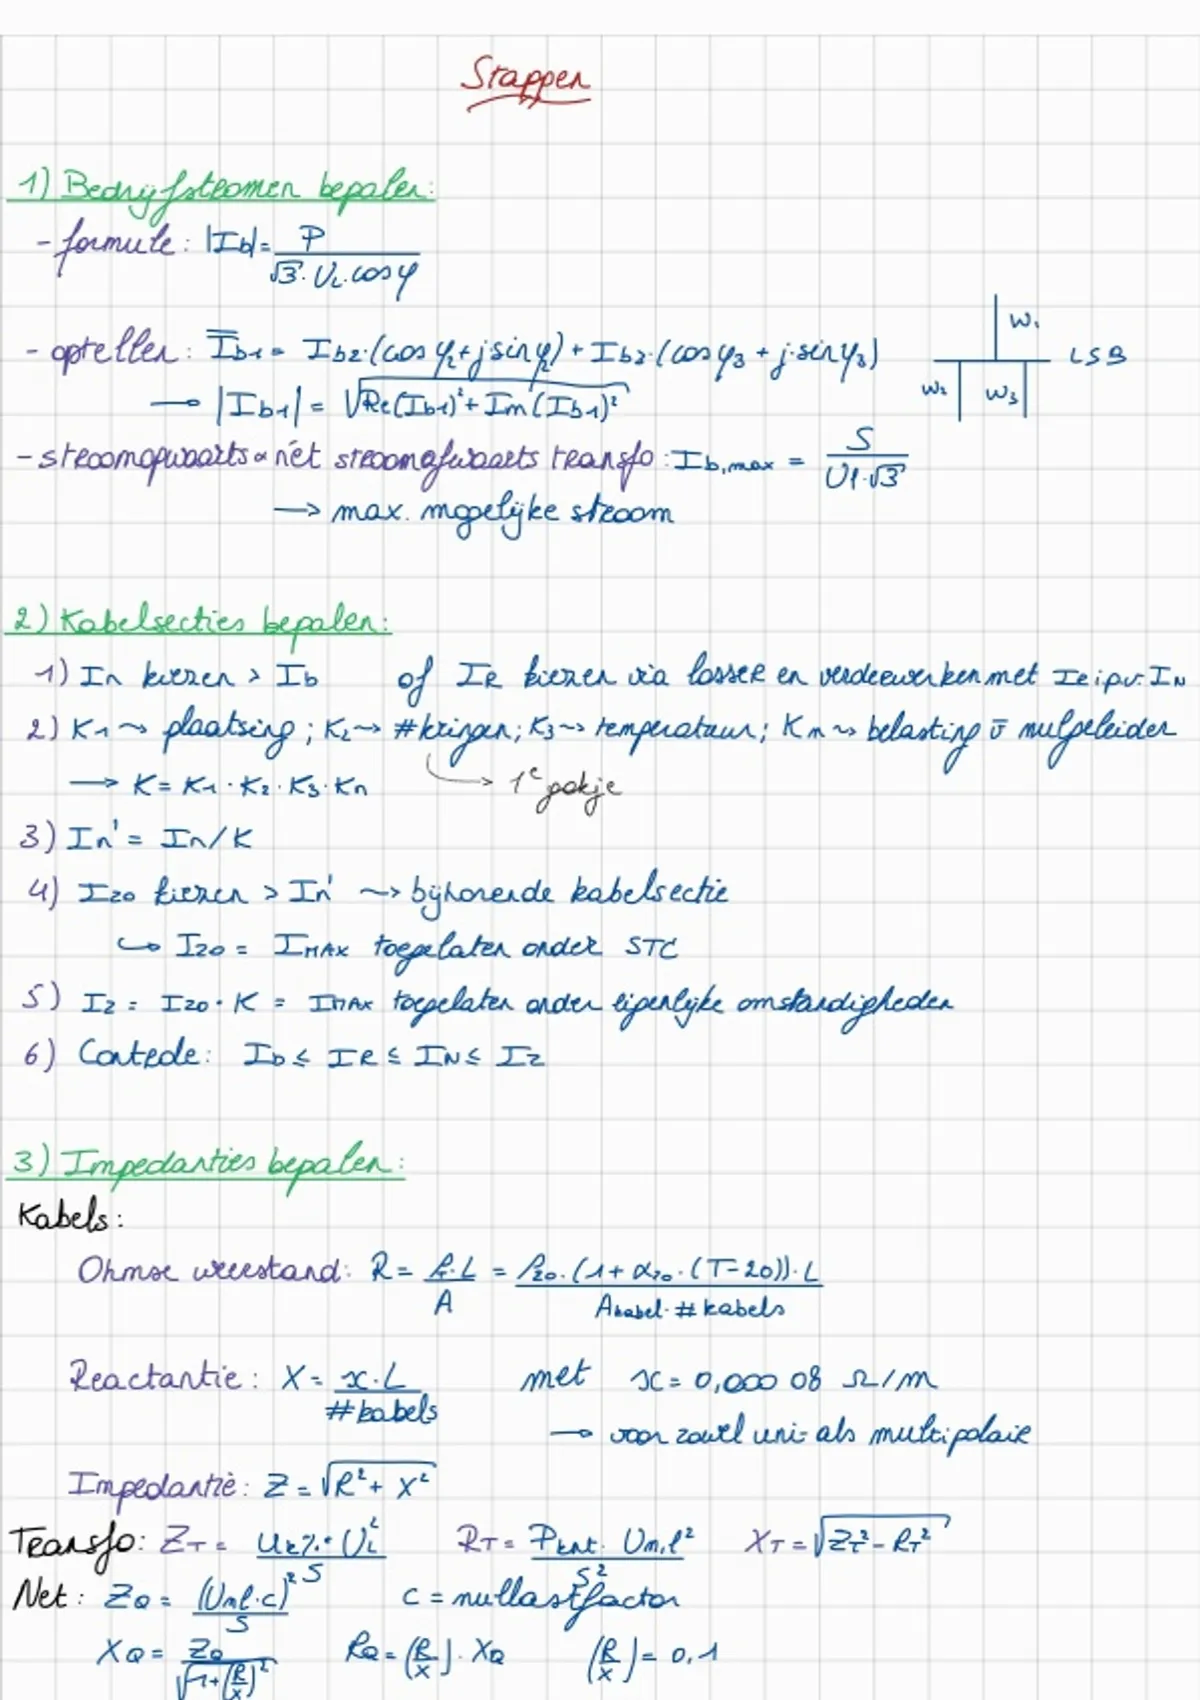 Stappen
1) Bedrijfstromen bepalen:
- formule: |Ib| = P / (√3 · UL · cosφ)
- optellen: I̅b1 = Ib2·(cosφ2 + j sinφ2) + Ib3·(cosφ3 + j·sinφ3)
W1
LSB
W2 W3
→ |Ib1| = √(Re(Ib1)² + Im(Ib1)²)
- stroomopwaarts & nét stroomafwaarts transfo: Ib,max = S / (Ul·√3)
→ max. mogelijke stroom
2) Kabelsecties bepalen:
1) In kiezen > Ib of IR kiezen via lasser en verderwerken met IR ipv. IN
2) K1 ~> plaatsing; K2 ~> #kringen; K3 ~> temperatuur; Kn ~> belasting v̄ nulgeleider
→ K = K1 · K2 · K3 · Kn
→ 1e gokje
3) In' = In/K
4) Iz0 kiezen > In' ~> bijhorende kabelsectie
↪ Iz0 = IMAX toegelaten onder STC
5) Iz = Iz0 · K = IMAX toegelaten onder eigenlijke omstandigheden
6) Controle: Ib ≤ IR ≤ IN ≤ Iz
3) Impedanties bepalen:
Kabels:
Ohmse weerstand: R = ρT·L / A = ρ20·(1+α20·(T-20))·L / (Akabel·#kabels)
Reactantie: X = x·L / #kabels met x = 0,000 08 Ω/m
→ voor zowel uni- als multipolair
Impedantie: Z = √(R² + X²)
Transfo: ZT = Uk%·UL² / S RT = Pknt·Un,l² / S² XT = √(ZT² - RT²)
Net: ZQ = (Unl·c)² / S c = nullastfactor
XQ = ZQ / √(1+(R/X)²) RQ = (R/X)·XQ (R/X) = 0,1